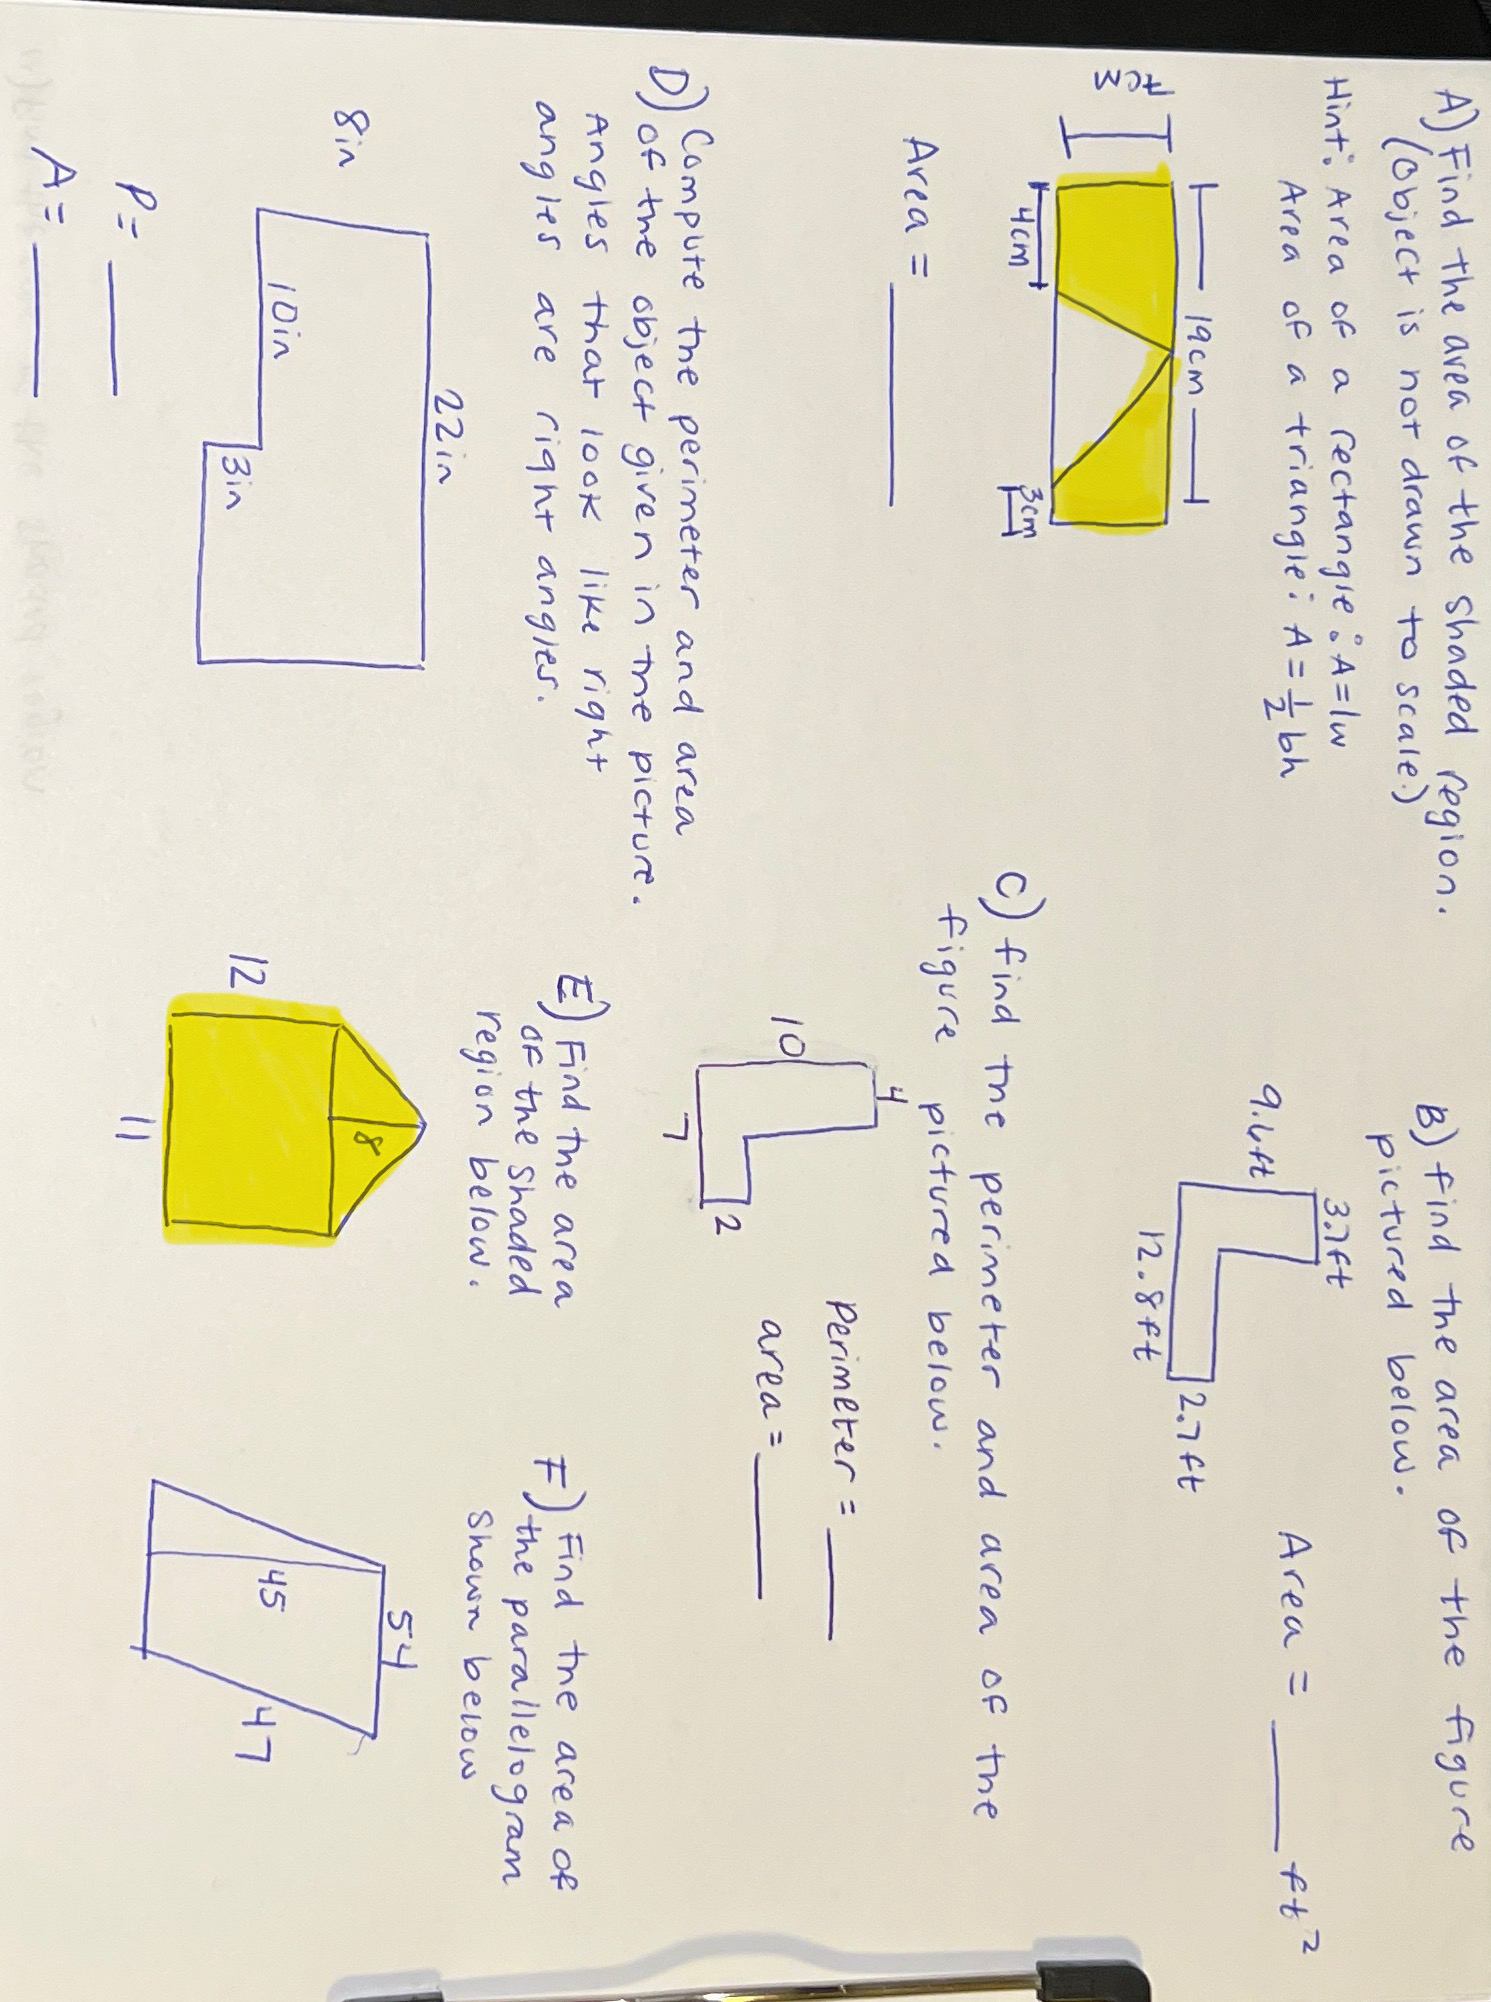 A) Find the area of the shaded region.
(Object is not drawn to scale.)
Hint: Area of a rectangle: A=lw
Area of a triangle: A=½bh
19cm
7cm
4cm
3cm
Area = ____
B) find the area of the figure
pictured below.
3.7ft
9.6ft
2.7ft
12.8ft
Area = ____ ft²
C) find the perimeter and area of the
figure pictured below.
4
10
2
7
Perimeter = ____
area = ____
D) Compute the perimeter and area
of the object given in the picture.
Angles that look like right
angles are right angles.
22in
8in
10in
3in
P= ____
A= ____
E) Find the area
of the shaded
region below.
8
12
11
F) Find the area of
the parallelogram
shown below
54
45
47